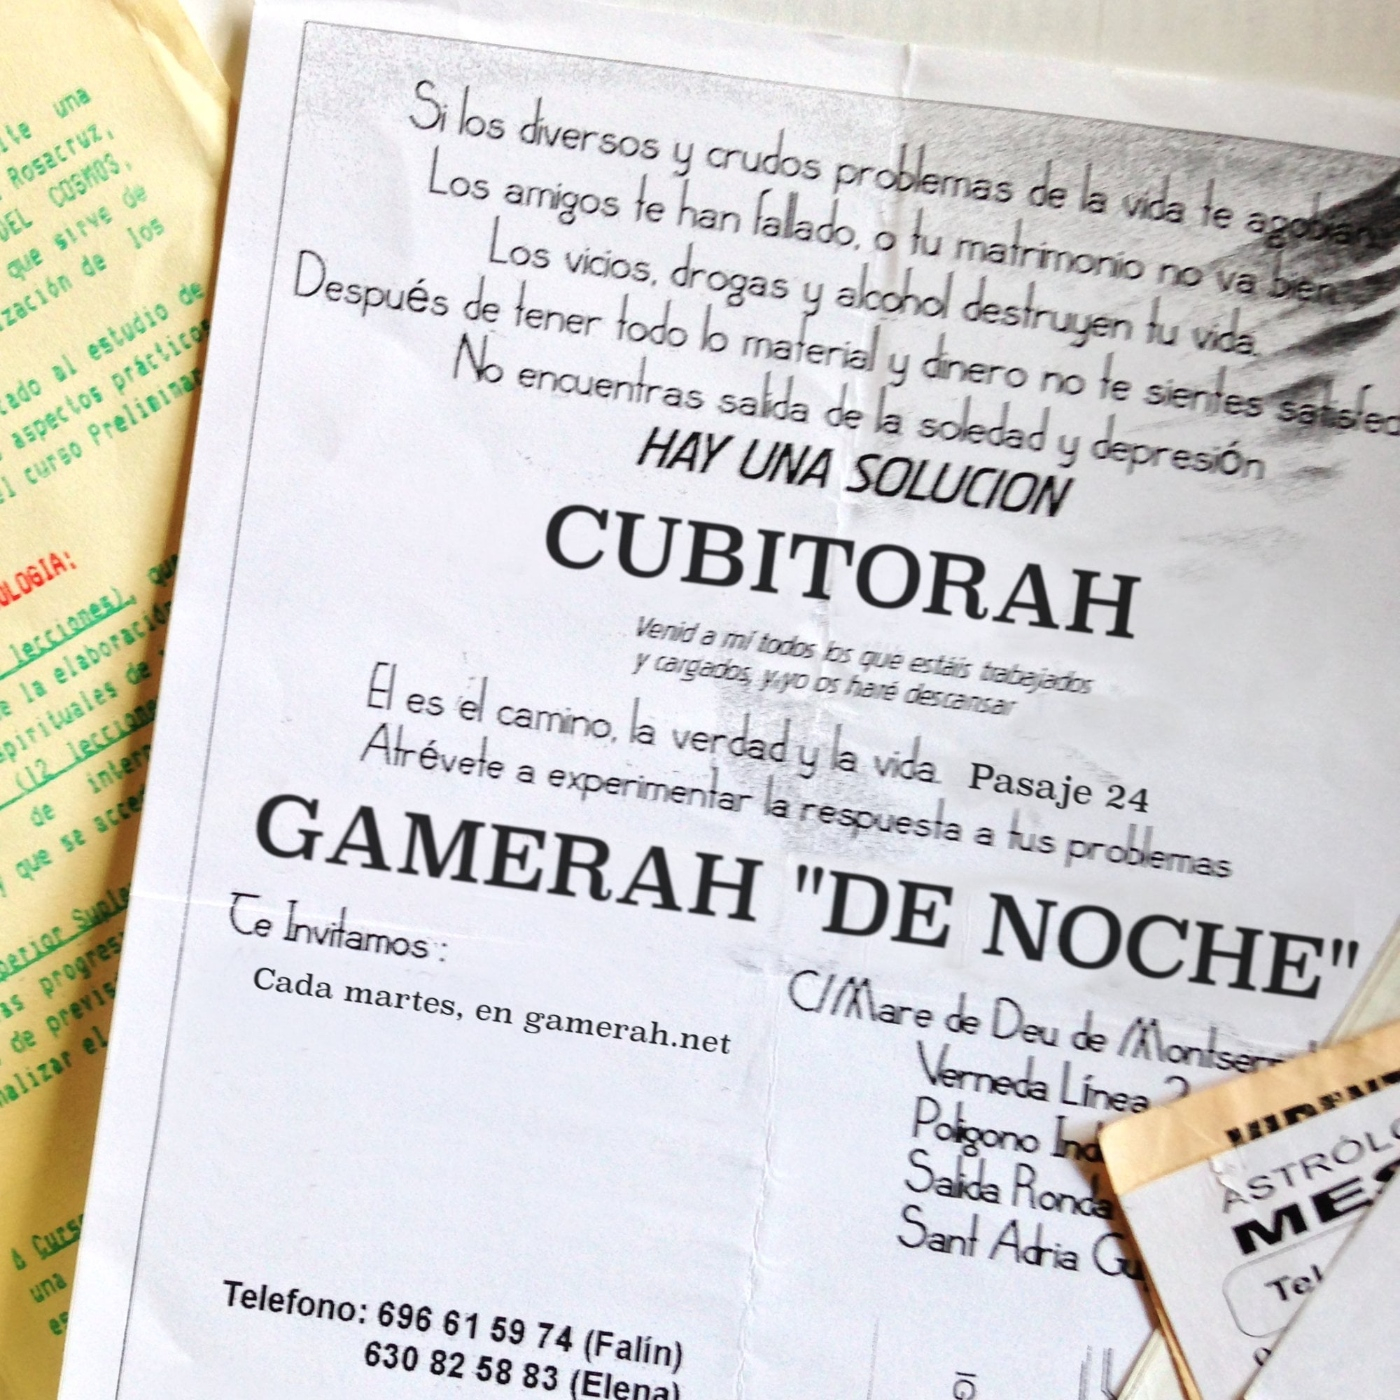 ite una
Rosacruz,
DEL COSMOS,
que sirve de
ización de los
cado al estudio de
aspectos prácticos
el curso Preliminar
OLOGIA:
lecciones), que
e la elaboración
spirituales de
(12 lecciones
de intern
y que se acce
perior Suple
as progresi
de previs
nalizar el
Curso
una
Si los diversos y crudos problemas de la vida te agobian
Los amigos te han fallado, o tu matrimonio no va bien
Los vicios, drogas y alcohol destruyen tu vida.
Después de tener todo lo material y dinero no te sientes satisfec
No encuentras salida de la soledad y depresión
HAY UNA SOLUCION
CUBITORAH
Venid a mí todos los que estáis trabajados
y cargados, y yo os haré descansar
El es el camino, la verdad y la vida. Pasaje 24
Atrévete a experimentar la respuesta a tus problemas
GAMERAH "DE NOCHE"
Te Invitamos :
Cada martes, en gamerah.net
C/Mare de Deu de Montserr
Verneda Línea 2
Poligono Ind
Salida Ronda
Sant Adria Gu
Telefono: 696 61 59 74 (Falín)
630 82 58 83 (Elena)
ASTRÓLO
MES
Tel